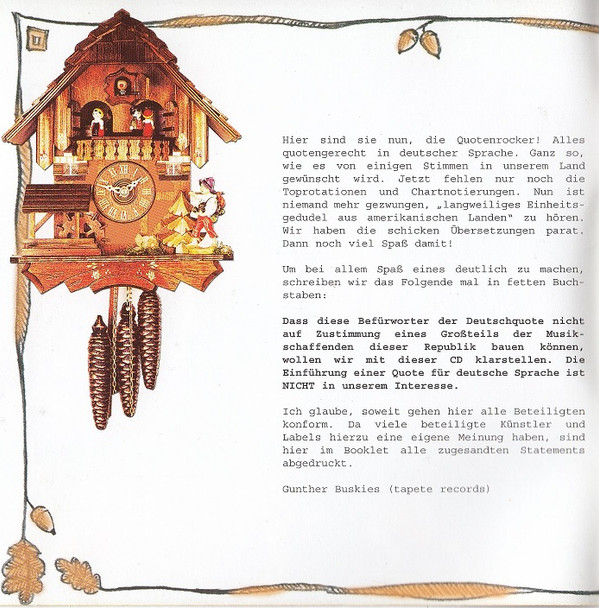 Hier sind sie nun, die Quotenrocker! Alles
quotengerecht in deutscher Sprache. Ganz so,
wie es von einigen Stimmen in unserem Land
gewünscht wird. Jetzt fehlen nur noch die
Toprotationen und Chartnotierungen. Nun ist
niemand mehr gezwungen, „langweiliges Einheits-
gedudel aus amerikanischen Landen“ zu hören.
Wir haben die schicken Übersetzungen parat.
Dann noch viel Spaß damit!
Um bei allem Spaß eines deutlich zu machen,
schreiben wir das Folgende mal in fetten Buch-
staben:
Dass diese Befürworter der Deutschquote nicht
auf Zustimmung eines Großteils der Musik-
schaffenden dieser Republik bauen können,
wollen wir mit dieser CD klarstellen. Die
Einführung einer Quote für deutsche Sprache ist
NICHT in unserem Interesse.
Ich glaube, soweit gehen hier alle Beteiligten
konform. Da viele beteiligte Künstler und
Labels hierzu eine eigene Meinung haben, sind
hier im Booklet alle zugesandten Statements
abgedruckt.
Gunther Buskies (tapete records)